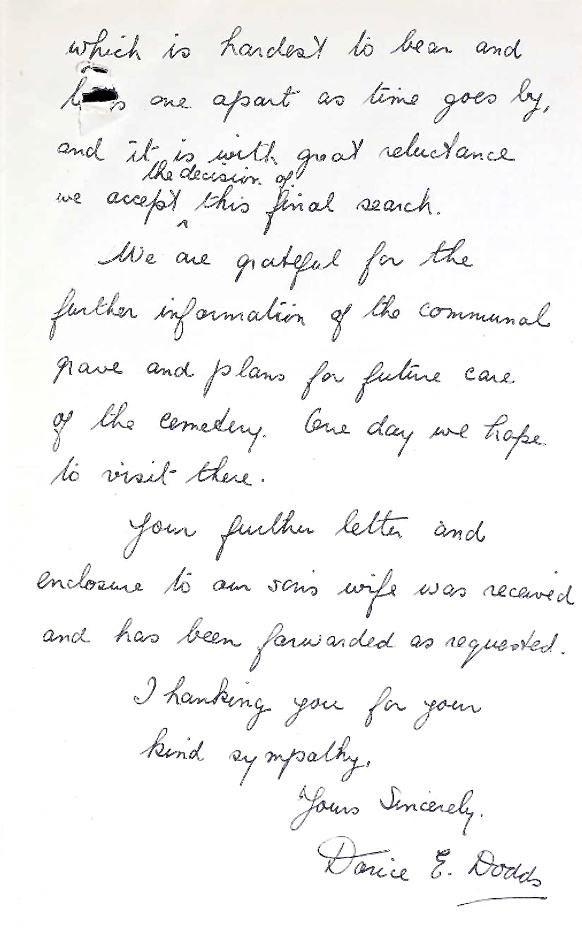 which is hardest to bear and
one apart as time goes by,
and it is with great reluctance
the decision of
we accept ^ this final search.
We are grateful for the
further information of the communal
grave and plans for future care
of the cemetery. One day we hope
to visit there.
Your further letter and
enclosure to our sons wife was received
and has been forwarded as requested.
Thanking you for your
kind sympathy,
Yours Sincerely.
Dorice E. Dodds